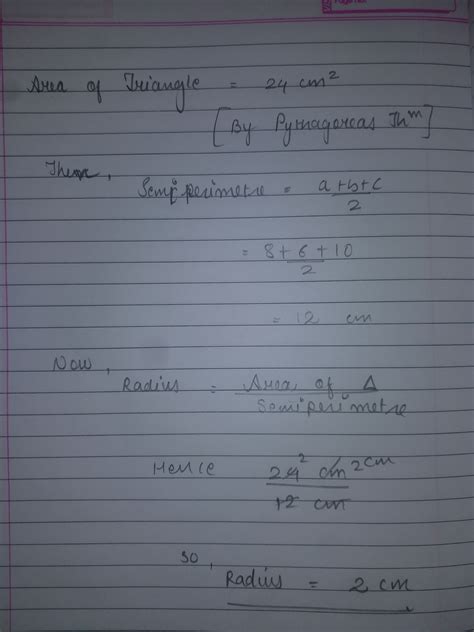 Page No.
Area of Triangle = 24 cm²
[By Pythagoreas Thᵐ]
Then,
Semiperimetre = a+b+c
2
= 8+6+10
2
= 12 cm
Now,
Radius = Area of Δ
Semiperimetre
Hence 24² cm² cm
12 cm
so,
Radius = 2 cm